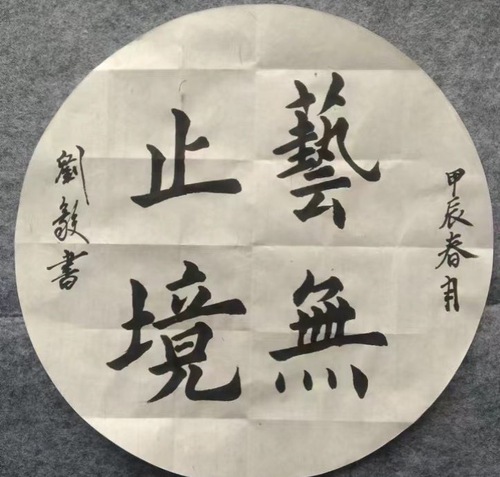 甲辰春月
藝無
止境
劉毅書